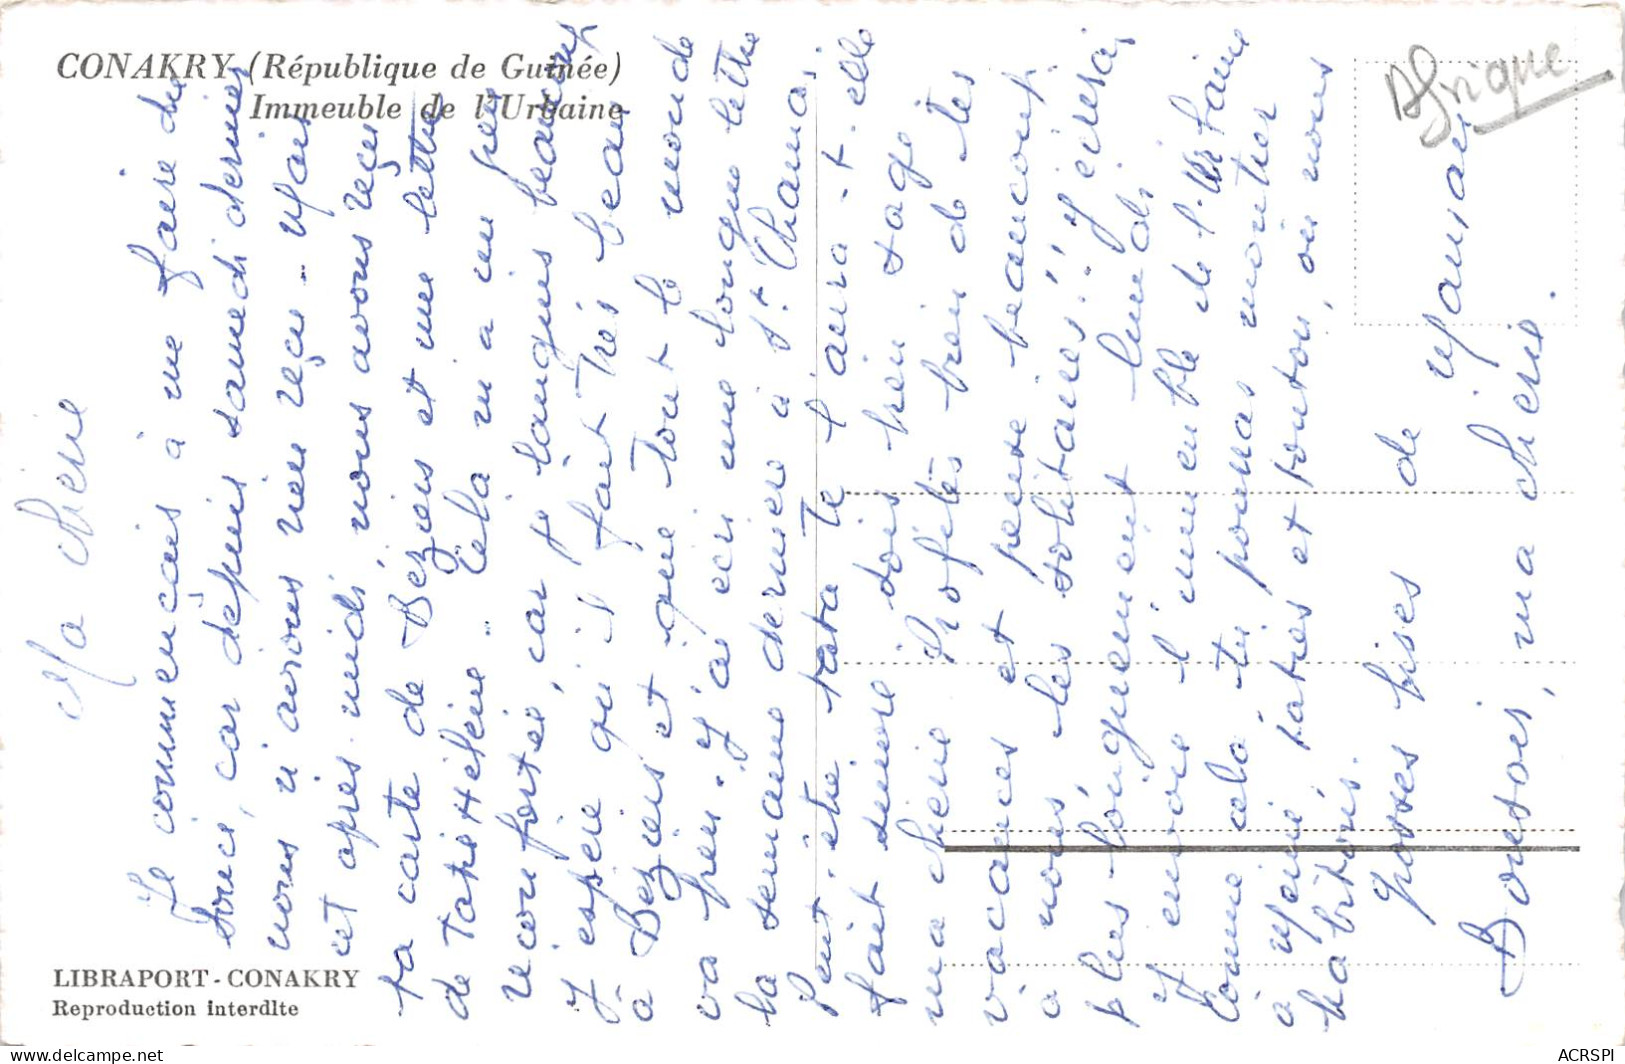 CONAKRY (République de Guinée)
Immeuble de l'Urbaine
Afrique
Ma chérie
Je commençais à me faire du
souci, car depuis samedi dernier
nous n'avons rien reçu. Mais
cet après midi, nous avons reçu
ta carte de Béziers et une lettre
de Tatie Hélène. Cela m'a un peu
réconfortée, car je languis beaucoup
J'espère qu'il fait très beau
à Béziers et que tout le monde
va bien. J'ai écri une longue lettre
la semaine dernière à St Chamas
Peut-être tata te l'aura-t-elle
fait suivre sois bien sage
ma chérie Profites bien de tes
vacances et pense beaucoup
à nous, les solitaires!! J'écrirai
plus longuement lundi
J'envoie l'immeuble de l'Urbaine
comme cela tu pourras montrer
à Mémé, taties et tontons, où nous
habitons.
Grosses bises de Maman
Bonsoir, ma chérie.
LIBRAPORT - CONAKRY
Reproduction interdite
ACRSPI